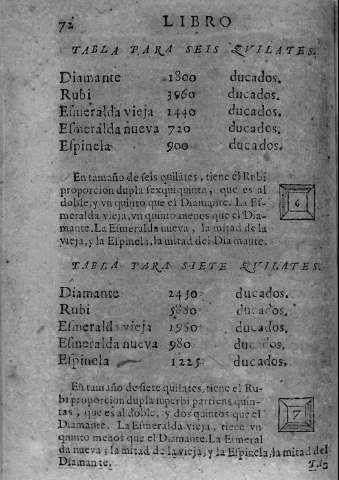 72 LIBRO
TABLA PARA SEIS QVILATES.
Diamante 1800 ducados.
Rubi 3960 ducados.
Eſmeralda vieja 1440 ducados.
Eſmeralda nueva 720 ducados.
Eſpinela 900 ducados.
En tamaño de ſeis quilates, tiene el Rubi
proporcion dupla ſexquiquinta, que es al
doble, y vn quinto que el Diamante. La Eſ-
meralda vieja, vn quinto menos que el Dia-
mante. La Eſmeralda nueva, la mitad de la
vieja, y la Eſpinela, la mitad del Diamante.
6
TABLA PARA SIETE QVILATES.
Diamante 2450 ducados.
Rubi 5880 ducados.
Eſmeralda vieja 1960 ducados.
Eſmeralda nueva 980 ducados.
Eſpinela 1225 ducados.
En tamaño de ſiete quilates, tiene el Ru-
bi proporcion dupla ſuperbi partiens quin-
tas, que es al doble, y dos quintos que el
Diamante. La Eſmeralda vieja, tiene vn
quinto menos que el Diamante. La Eſmeral
da nueva; la mitad de la vieja, y la Eſpinela, la mitad del
Diamante.
7